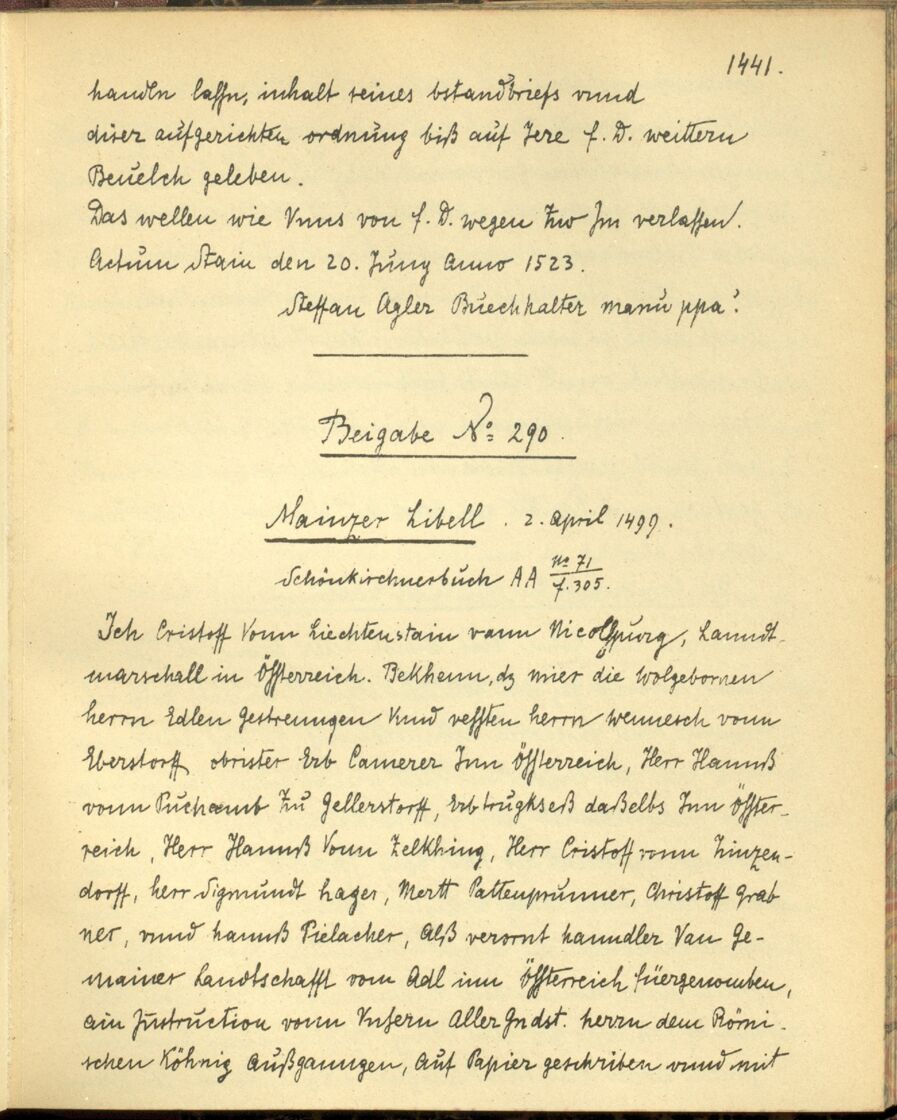 1441.
handln lassn, inhalt seines bstandbriefs vnnd
diser aufgerichten ordnung biß auf Jere f. D. weittern
Beuelch geleben.
Das wellen wie Vnns von f. D. wegen Zw Jm verlassen.
Actum Stain den 20. Juny Anno 1523.
Steffan Agler Buechhalter manu ppa.
Beigabe No 290.
Mainzer Libell. 2. April 1499.
Schönkirchnerbuch AA No 71
f. 305.
Ich Cristoff Vonn Liechtenstain vann Nicolspurg, Lanndt-
marschall in Össterreich. Bekhenn, dz mier die wolgebornen
herrn Edlen Gestrenngen Vnnd vessten herrn wennesch vonn
Eberstorff obrister Erb Camerer Inn Össterreich, Herr Hannß
vonn Puchamb Zu Gellerstorff, Erbtrugkseß daßelbs InnÖsster-
reich, Herr Hannß Vonn Zelkhing, Herr Cristoff vonn Zinzen-
dorff, herr Sigmundt hager, Mertt Pattenprunner, Christoff Grab
ner, vnnd hannß Pielacher, Alß verornt hanndler Van Ge-
mainer Landtschafft vom Adl inn Össterreich füergenomben,
ain Instruction vonn Vnsern Aller Gndst. herrn dem Römi-
schen Köhnig Außganngen, Auf Papier geschriben vnnd mit